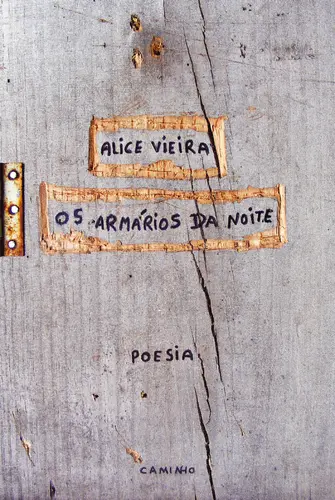 ALICE VIEIRA
OS ARMÁRIOS DA NOITE
POESIA
CAMINHO